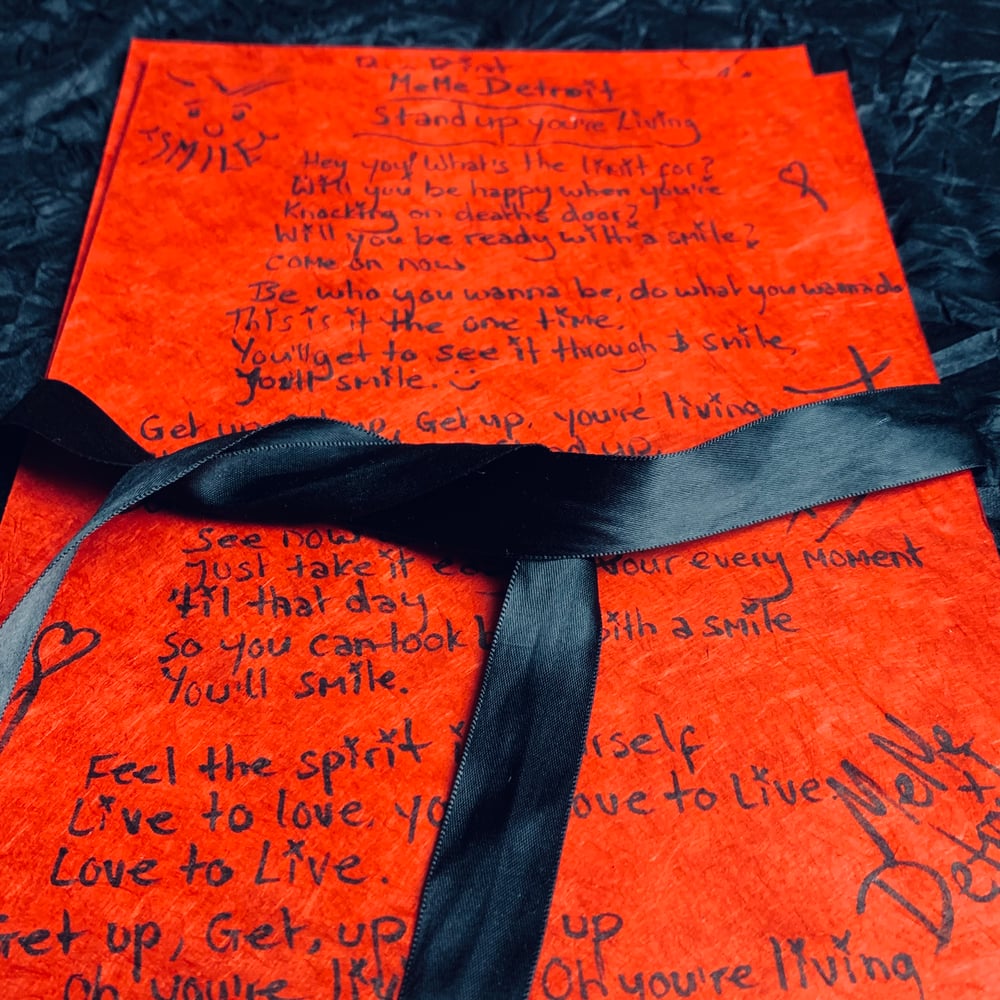 MeMe Detroit
Stand up you're Living
SMILE
Hey you! What's the limit for?
Will you be happy when you're
Knocking on deaths door?
Will you be ready with a smile?
come on now
Be who you wanna be, do what you wanna do
This is it the one time,
You'll get to see it through & smile,
You'll smile.
Get up, Get up, Get up, you're living
up
See now
Just take it your every MOMENT
'til that day
So you can look with a smile
You'll smile.
Feel the spirit
Live to love, love to Live.
Love to Live.
MeMe
Detroit
Get up, Get, up up
Oh you're Oh you're living